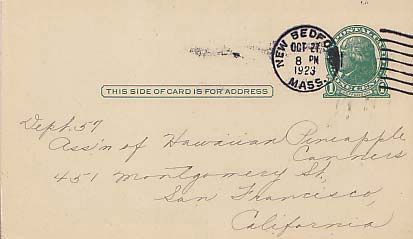 NEW BEDFORD
OCT 21
8 PM
1923
MASS.
THIS SIDE OF CARD IS FOR ADDRESS
Deph. 57
Ass'n of Hawaiian Pineapple
Canners
451 Montgomery St.
San Francisco,
California